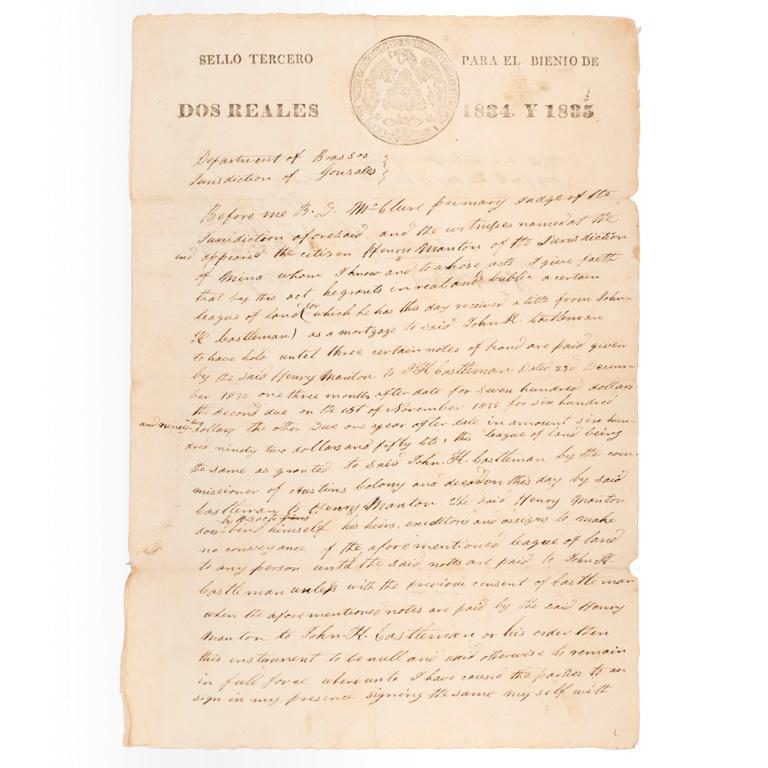 SELLO TERCERO PARA EL BIENIO DE
DOS REALES 1834. Y 1835
Department of Brassos
Jurisdiction of Gonzales
Before me B. D. McClure primary Judge of the
Jurisdiction aforesaid and the witnesses named at the
end appeared the citizen Henry Manton of the Jurisdiction
of Mina whom I know and to whose acts I give faith
that by this act he grants in real and public a certain
league of land (for which he has this day received a title from John
K Castleman) as a mortgage to said John K. Castleman
to have hole until three certain notes of hand are paid given
by the said Henry Manton to J K Castleman Dated 23d Decem-
ber 1834 one three months after date for seven hundred dollars
the second due on the 1st of November 1835 for six hundred
and ninety two dollars the other Due one year after date in amount six hun-
dred ninety two dollars and fifty cts, this league of land being
the same as granted to said John. K. Castleman by the com-
missioner of Austins Colony and deeded on this day by said
Castleman to Henry Manton The said Henry Manton
does by these bind himself his heirs, executors and assigns to make
no conveyance of the aforementioned league of land
to any person until the said notes are paid to John K.
Castleman unless with the previous consent of Castleman
when the aforementioned notes are paid by the said Henry
Manton to John. K. Castleman or his order then
this instrument to be null and void otherwise to remain
in full force where unto I have caused the parties to as-
sign in my presence signing the same my self with